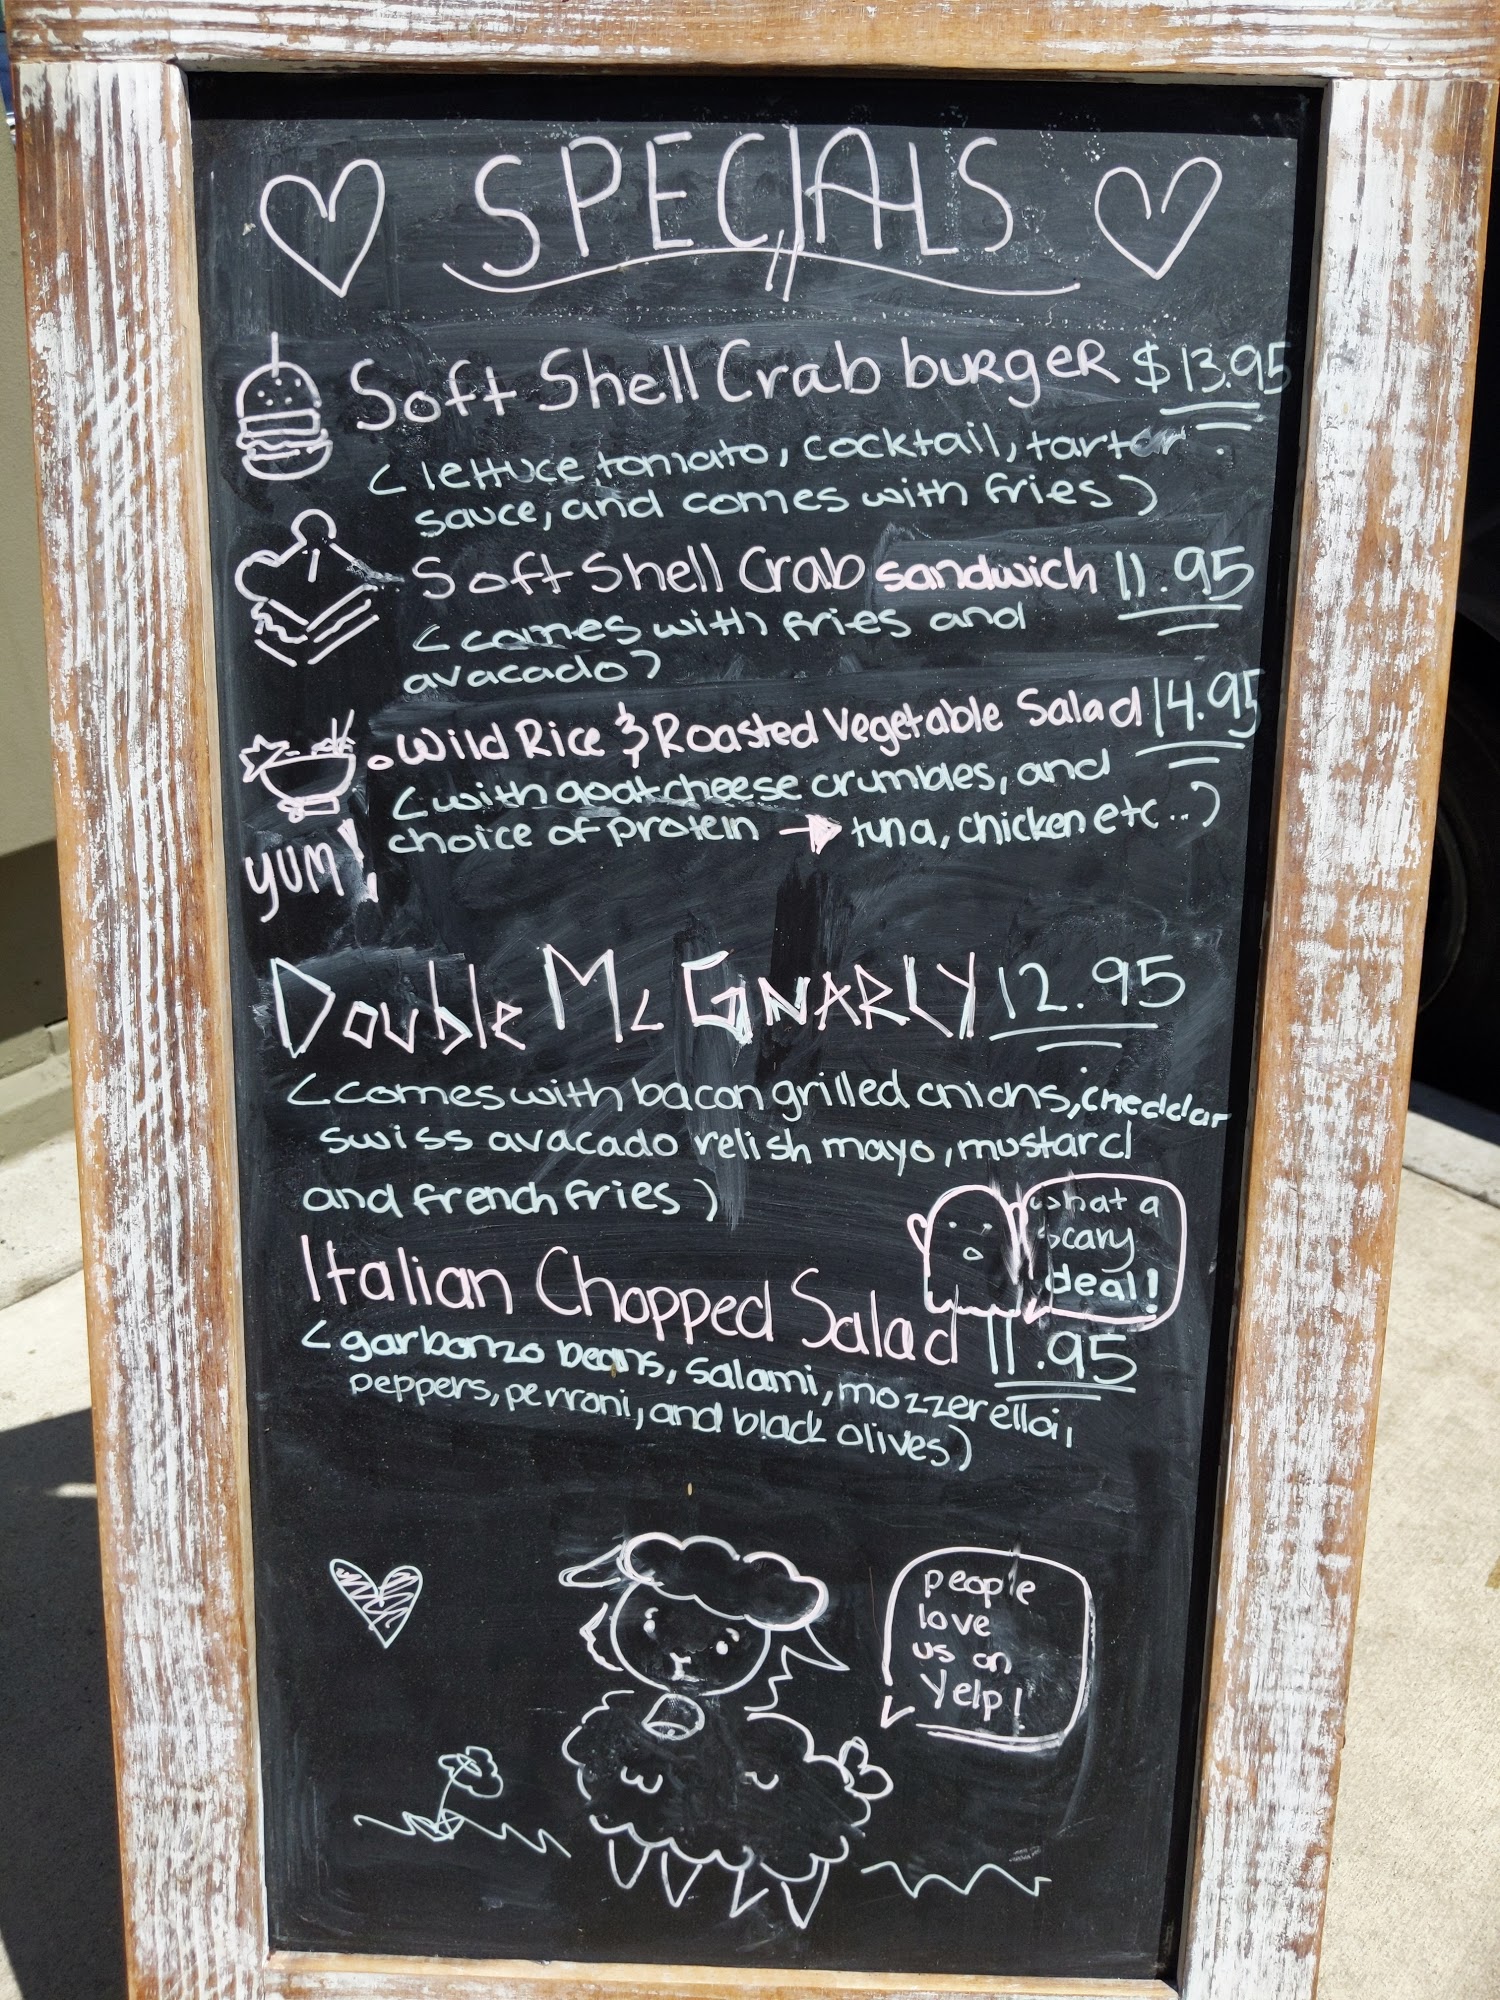 SPECIALS
Soft Shell Crab burger $13.95
(lettuce, tomato, cocktail, tartar
sauce, and comes with fries)
Soft Shell Crab sandwich 11.95
(comes with fries and
avacado)
Wild Rice & Roasted Vegetable Salad 14.95
(with goat cheese crumbles, and
choice of protein → tuna, chicken etc...)
YUM!
Double Mc GNARLY 12.95
(comes with bacon grilled onions, cheddar
swiss avacado relish mayo, mustard
and french fries)
what a
scary
deal!
Italian Chopped Salad 11.95
(garbonzo beans, salami, mozzerella,
peppers, perroni, and black olives)
people
love
us on
Yelp!